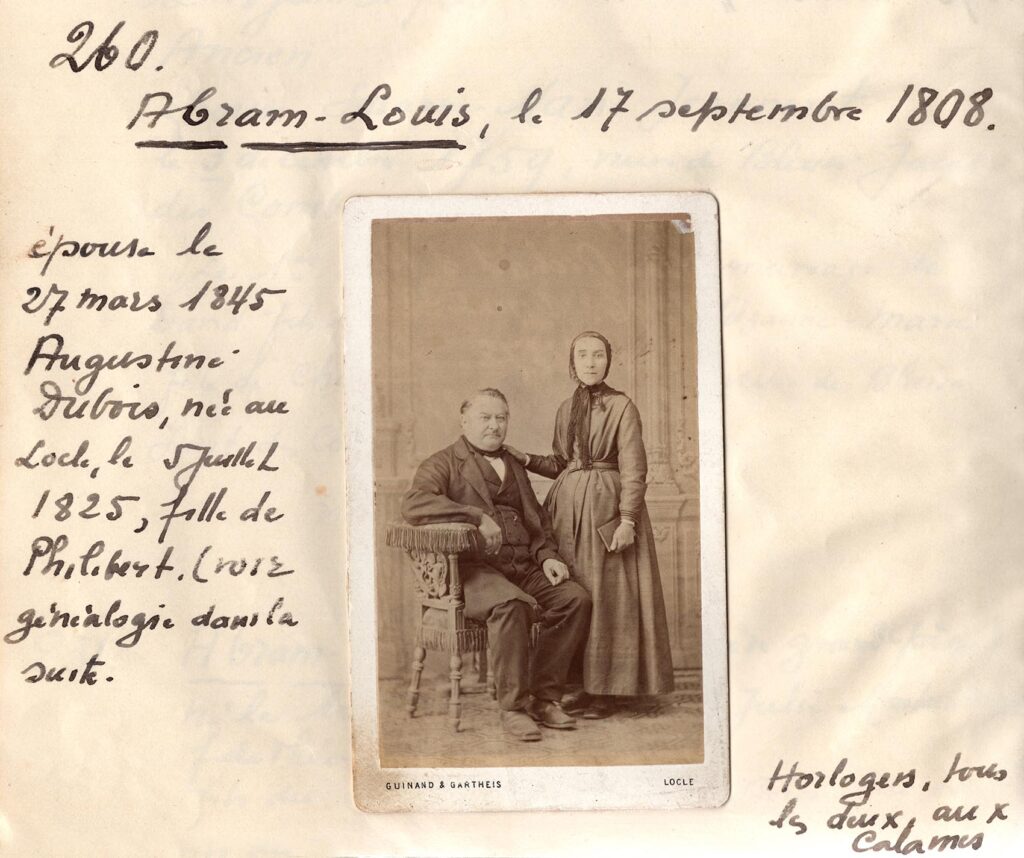 260.
Abram-Louis, le 17 septembre 1808.
épouse le
27 mars 1845
Augustine
Dubois, née au
Locle, le 5 Juillet
1825, fille de
Philibert. (voir
généalogie dans la
suite.
GUINAND & GARTHEIS LOCLE
Horlogers, tous
les deux, aux
Calames